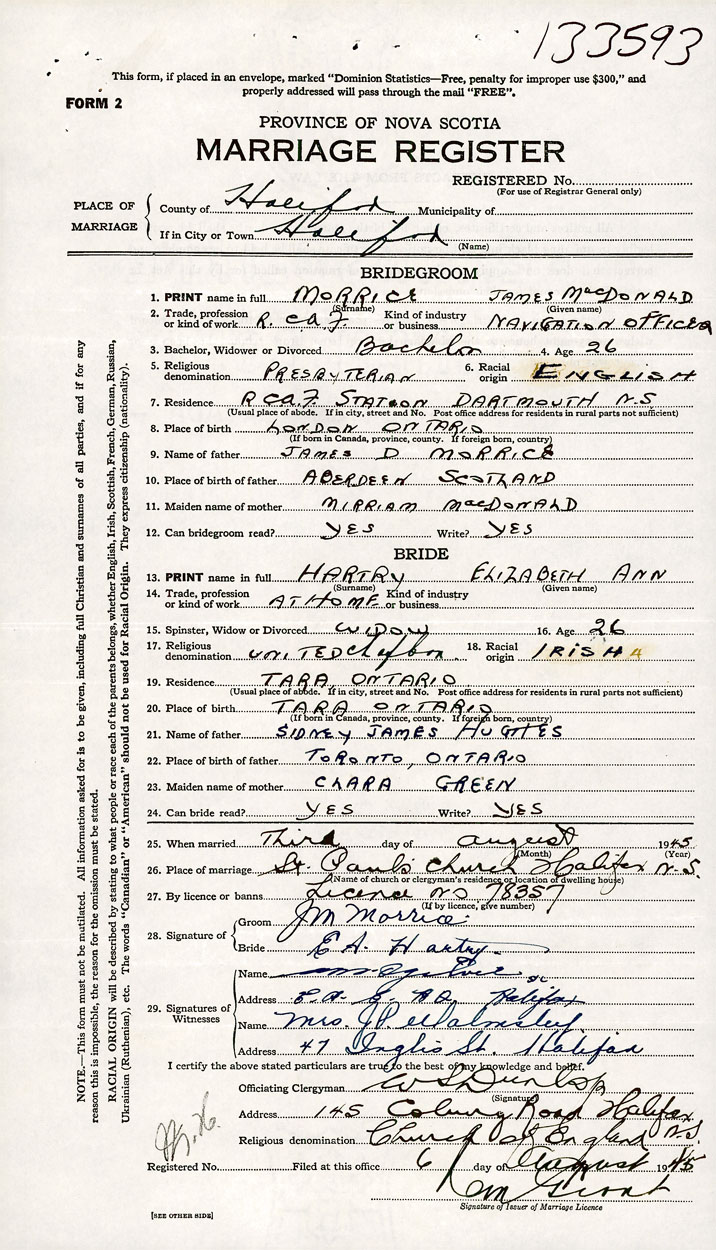 133593
This form, if placed in an envelope, marked "Dominion Statistics—Free, penalty for improper use $300," and
properly addressed will pass through the mail "FREE".
FORM 2
PROVINCE OF NOVA SCOTIA
MARRIAGE REGISTER
REGISTERED No.
(For use of Registrar General only)
PLACE OF MARRIAGE
County of Halifax Municipality of
If in City or Town Halifax
(Name)
BRIDEGROOM
1. PRINT name in full MORRICE JAMES MacDONALD
(Surname) (Given name)
2. Trade, profession or kind of work R.C.A.F. Kind of industry or business NAVIGATION OFFICER
3. Bachelor, Widower or Divorced Bachelor 4. Age 26
5. Religious denomination PRESBYTERIAN 6. Racial origin ENGLISH
7. Residence RCAF STATION DARTMOUTH N.S
(Usual place of abode. If in city, street and No. Post office address for residents in rural parts not sufficient)
8. Place of birth LONDON ONTARIO
(If born in Canada, province, county. If foreign born, country)
9. Name of father JAMES D MORRICE
10. Place of birth of father ABERDEEN SCOTLAND
11. Maiden name of mother MIRRIAM MacDONALD
12. Can bridegroom read? YES Write? YES
BRIDE
13. PRINT name in full HARTRY ELIZABETH ANN
(Surname) (Given name)
14. Trade, profession or kind of work AT HOME Kind of industry or business
15. Spinster, Widow or Divorced WIDOW 16. Age 26
17. Religious denomination UNITED Ch of 18. Racial origin IRISH
19. Residence TARA ONTARIO
(Usual place of abode. If in city, street and No. Post office address for residents in rural parts not sufficient)
20. Place of birth TARA ONTARIO
(If born in Canada, province, county. If foreign born, country)
21. Name of father SIDNEY JAMES HUGHES
22. Place of birth of father TORONTO, ONTARIO
23. Maiden name of mother CLARA GREEN
24. Can bride read? YES Write? YES
25. When married Third day of August 1945
(Month) (Year)
26. Place of marriage St. Paul's Church Halifax N.S.
(Name of church or clergyman's residence or location of dwelling house)
27. By licence or banns Licence No 78357
(If by licence, give number)
28. Signature of
Groom JM Morrice
Bride E A. Hartry
29. Signatures of Witnesses
Name
Address Halifax
Name Mrs. J.P. Walmsley
Address 47 Inglis St. Halifax
I certify the above stated particulars are true to the best of my knowledge and belief.
Officiating Clergyman W S Dunlop
(Signature)
Address 145 Coburg Road Halifax N.S.
Religious denomination Church of England
Registered No. Filed at this office 6 day of August 1945
Grant
Signature of Issuer of Marriage Licence
[SEE OTHER SIDE]
NOTE.—This form must not be mutilated. All information asked for is to be given, including full Christian and surnames of all parties, and if for any
reason this is impossible, the reason for the omission must be stated.
RACIAL ORIGIN will be described by stating to what people or race each of the parents belongs, whether English, Irish, Scottish, French, German, Russian,
Ukrainian (Ruthenian), etc. The words "Canadian" or "American" should not be used for Racial Origin. They express citizenship (nationality).